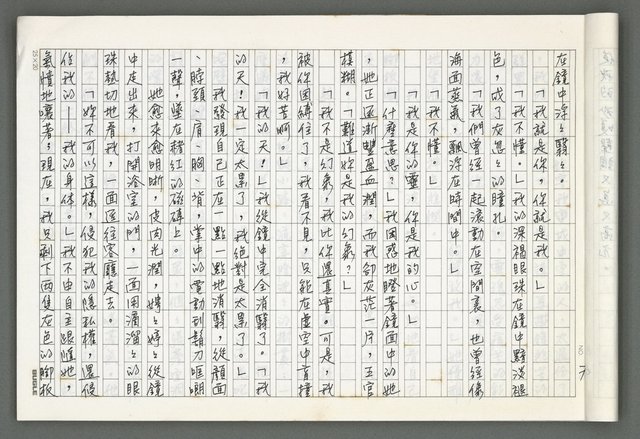 在鏡中浮々翳々。
「我就是你，你就是我。」
「我不懂。」我的深褐眼珠在鏡中黯淡褪
色，成了灰忽々的瞳孔。
「我們曾經一起滾動在空間裏，也曾經像
海面蒸氣，飄浮在時間中。」
「我不懂。」
「我是你的靈，你是我的心。」
「什麼意思？」我困惑地瞪著鏡面中的她
，她正逐漸豐盈血潤，而我卻灰茫一片，五官
模糊。「難道妳是我的幻象？」
「我不是幻象，我比你還真實。可是，我
被你囚縛住了，我看不見，只能在虛空中盲撞
，我好苦啊。」
「我的天！」我從鏡中完全消翳了。「我
的天！我一定太累了，我絕對是太累了。」
我發現自己正在一點一點地消翳，從顏面
、脖頸、肩、胸、背，掌中的電動刮鬍刀哐啷
一聲，墜在橘紅的磁磚上。
她愈來愈明晰，皮肉光潤，娉々婷々從鏡
中走出來，打開浴室的門，一面用滴溜々的眼
珠熱切地看我，一面逕往客廳走去。
「妳不可以這樣，侵犯我的隱私權，還侵
佔我的——我的身体。」我不由自主跟隨她，
氣憤地嚷著，現在，我只剩下兩隻灰色的腳板
25×20